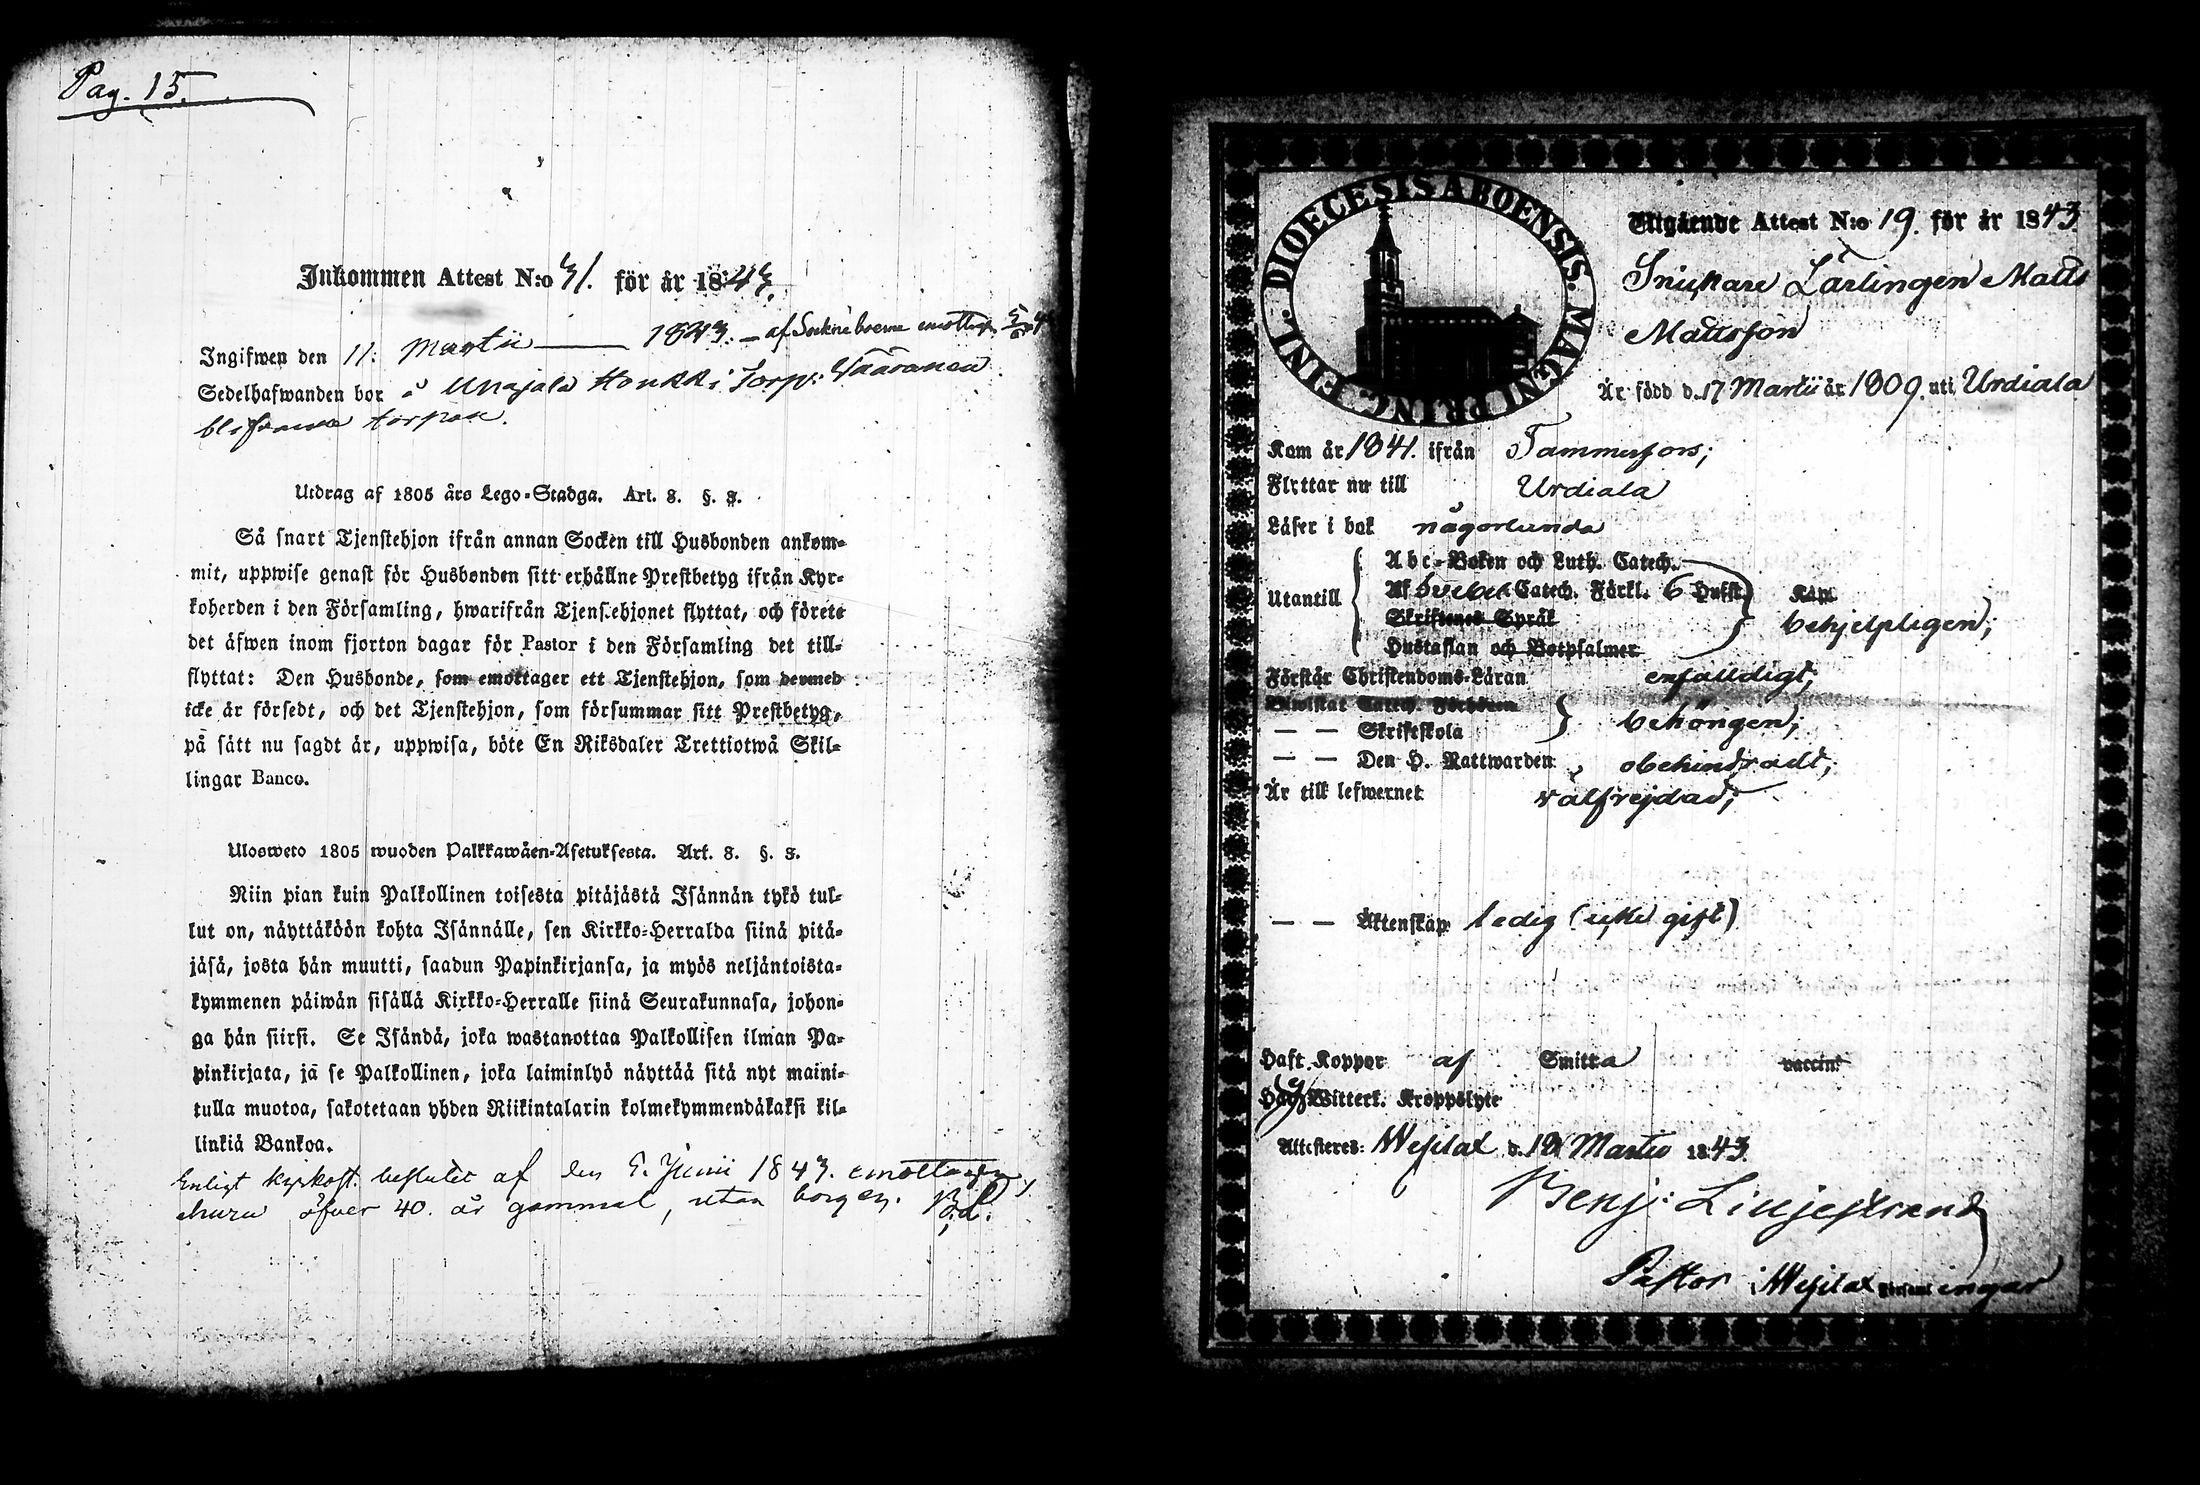 Pag. 15.
Inkommen Attest N:o 31. för år 1843.
Ingifwen den 11. Martii 1843. – af Sockneboerne emottagen
Sedelhafwanden bor å Urajala Honkki Torp: Vääränen
blifwande torpare.
Utdrag af 1805 års Lego-Stadga. Art. 8. §. 3.
Så snart Tjenstehjon ifrån annan Socken till Husbonden ankom-
mit, uppwise genast för Husbonden sitt erhållne Prestbetyg ifrån Kyr-
koherden i den Församling, hwarifrån Tjenstehjonet flyttat, och förete
det äfwen inom fjorton dagar för Pastor i den Församling det till-
flyttat: Den Husbonde, som emottager ett Tjenstehjon, som dermed
icke är försedt, och det Tjenstehjon, som försummar sitt Prestbetyg,
på sätt nu sagdt är, uppwisa, böte En Riksdaler Trettiotwå Skil-
lingar Banco.
Ulosweto 1805 wuoden Palkkawäen-Asetuksesta. Art. 8. §. 3.
Niin pian kuin Palkollinen toisesta pitäjästä Isännän tykö tul-
lut on, näyttäköön kohta Isännälle, sen Kirkko-Herralda siinä pitä-
jäsä, josta hän muutti, saadun Papinkirjansa, ja myös neljäntoista-
kymmenen päiwän sisällä Kirkko-Herralle siinä Seurakunnasa, johon-
ga hän siirsi. Se Isändä, joka wastanottaa Palkollisen ilman Pa-
pinkirjata, ja se Palkollinen, joka laiminlyö näyttää sitä nyt maini-
tulla muotoa, sakotetaan yhden Riikintalarin kolmekymmendäkaksi kil-
linkiä Bankoa.
Enligt kyrkost. beslutet af den 5. Junii 1843. emottagen,
ehuru öfver 40. år gammal, utan borgen.
DIOECESIS ABOENSIS. MAGNI PRINC. FINL.
Utgående Attest N:o 19. för år 1843
Snickare Lärlingen Matts
Mattsson
Är född d. 17 Martii år 1809. uti Urdiala
Kom år 1841. ifrån Tammerfors;
Flyttar nu till Urdiala
Läser i bok någorlunda
Utantill Abc-Boken och Luth. Catech.
Af Svebel. Catech. Förkl. 6 Hufst. Kän
Skriftenes Språk behjelpligen;
Hustaflan och Botpsalmer
Förstår Christendoms-Läran enfalldigt;
Bewistat Catech. Förhören
— — Skriftskola behörigen;
— — Den H. Nattwarden obehindradt;
Är till lefwernet välfrejdad;
— — Äktenskap ledig (icke gift)
Haft Koppor af Smitta vaccin:
Har Witterl. Kroppslyte
Attesteres: Wesilax d. 19 Martii 1843.
Benj: Liljestrand
Pastor i Wesilax Församlingar